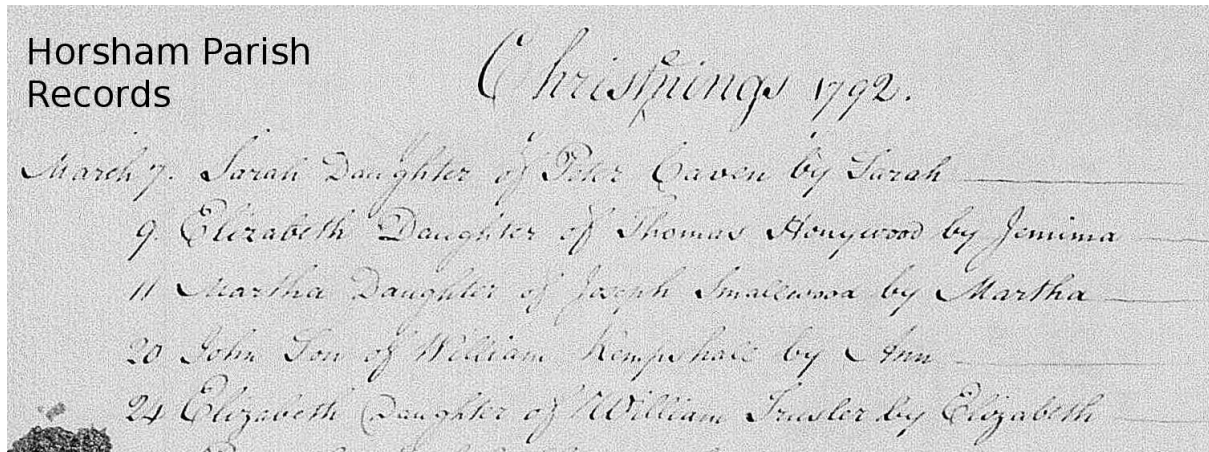 Horsham Parish
Records
Christnings 1792.
March 7. Sarah Daughter of Peter Caven by Sarah
9. Elizabeth Daughter of Thomas Honywood by Jemima
11 Martha Daughter of Joseph Smallwood by Martha
20 John Son of William Kempshall by Ann
24 Elizabeth Daughter of William Trusler by Elizabeth